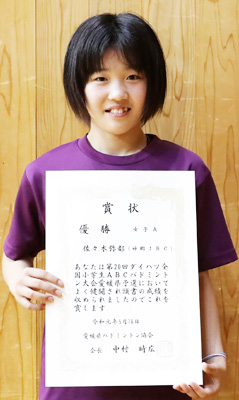 賞状
優勝 女子A
佐々木弥都(神郷JBC)
あなたは第20回ダイハツ全
国小学生ABCバドミント
ン大会愛媛県予選において
よく健闘され頭書の成績を
収められましたのでこれを
賞します
令和元年5月18日
愛媛県バドミントン協会
会長 中村時広